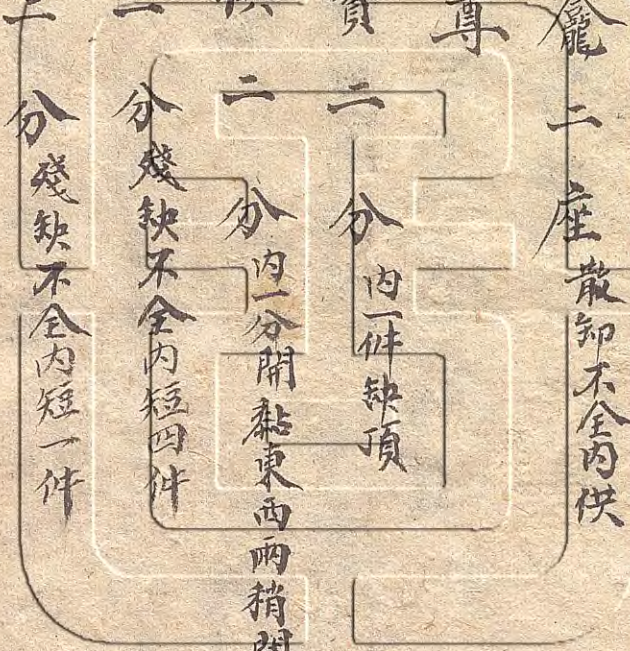 龕二座散卸不全內供
尊
二分內一件缺頂
二分內一分開黏東西兩稍開
二分殘缺不全內短四件
二分殘缺不全內短一件